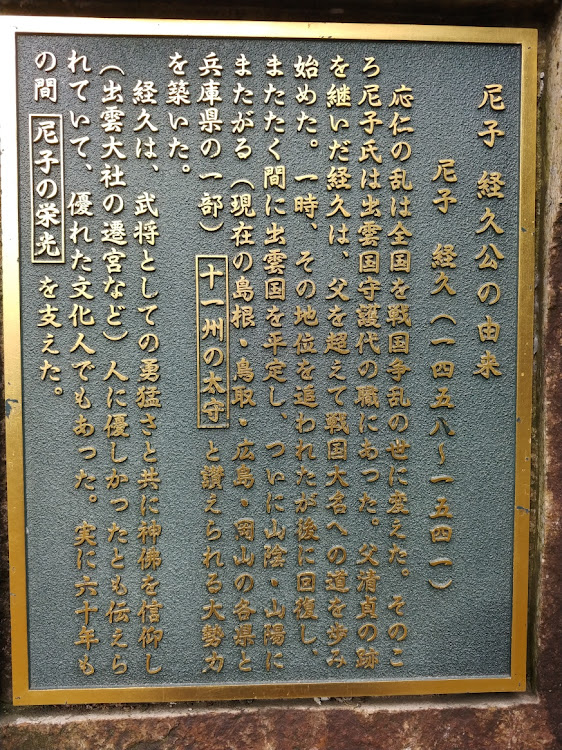 尼子 経久公の由来
尼子 経久（一四五八～一五四一）
応仁の乱は全国を戦国争乱の世に変えた。そのこ
ろ尼子氏は出雲国守護代の職にあった。父清貞の跡
を継いだ経久は、父を超えて戦国大名への道を歩み
始めた。一時、その地位を追われたが後に回復し、
またたく間に出雲国を平定し、ついに山陰・山陽に
またがる（現在の島根・鳥取・広島・岡山の各県と
兵庫県の一部）十一州の太守と讃えられる大勢力
を築いた。
経久は、武将としての勇猛さと共に神佛を信仰し
（出雲大社の遷宮など）人に優しかったとも伝えら
れていて、優れた文化人でもあった。実に六十年も
の間 尼子の栄光 を支えた。